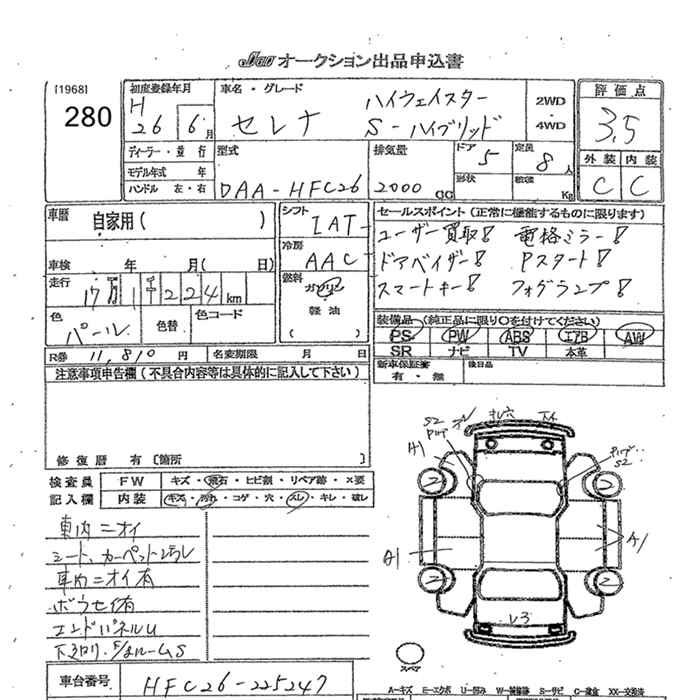 JAO オークション出品申込書
[1968]
280
初度登録年月
H
26 6月
車名・グレード
セレナ
ハイウェイスター
S-ハイブリッド
2WD
・
4WD
評価点
3.5
外装 内装
C C
ディーラー・並行
モデル年式 年
ハンドル 左・右
型式
DAA-HFC26
排気量
2000 CC
ドア
5
定員
8人
形状
積載 Kg
車歴
自家用( )
車検 年 月( 日)
走行
17万1千224 km
色
パール
色替
色コード
シフト
IAT
冷房
AAC
燃料
ガソリン
軽油
( )
セールスポイント(正常に機能するものに限ります)
ユーザー買取! 電格ミラー!
ドアバイザー! Pスタート!
スマートキー! フォグランプ!
装備品(純正品に限り○を付けてください)
PS PW ABS エアB AW
SR ナビ TV 本革
新車保証書
有・無
後日品
R券 11,810 円
名変期限 月 日
注意事項申告欄(不具合内容等は具体的に記入して下さい)
修復歴 有〔箇所
検査員
記入欄
FW キズ・飛石・ヒビ割・リペア跡・×要
内装 キズ・汚れ・コゲ・穴・スレ・キレ・破レ
車内ニオイ
シート、カーペット
車内ニオイ有
ボウセイ有
エンドパネルU
下廻り、ルームS
車台番号
HFC26-225247
A1
S2
A1
S2
A1
2
2
2
2
スペア
A-キズ E-エクボ U-凹み W-補修跡 S-サビ C-腐食 XX-交換済